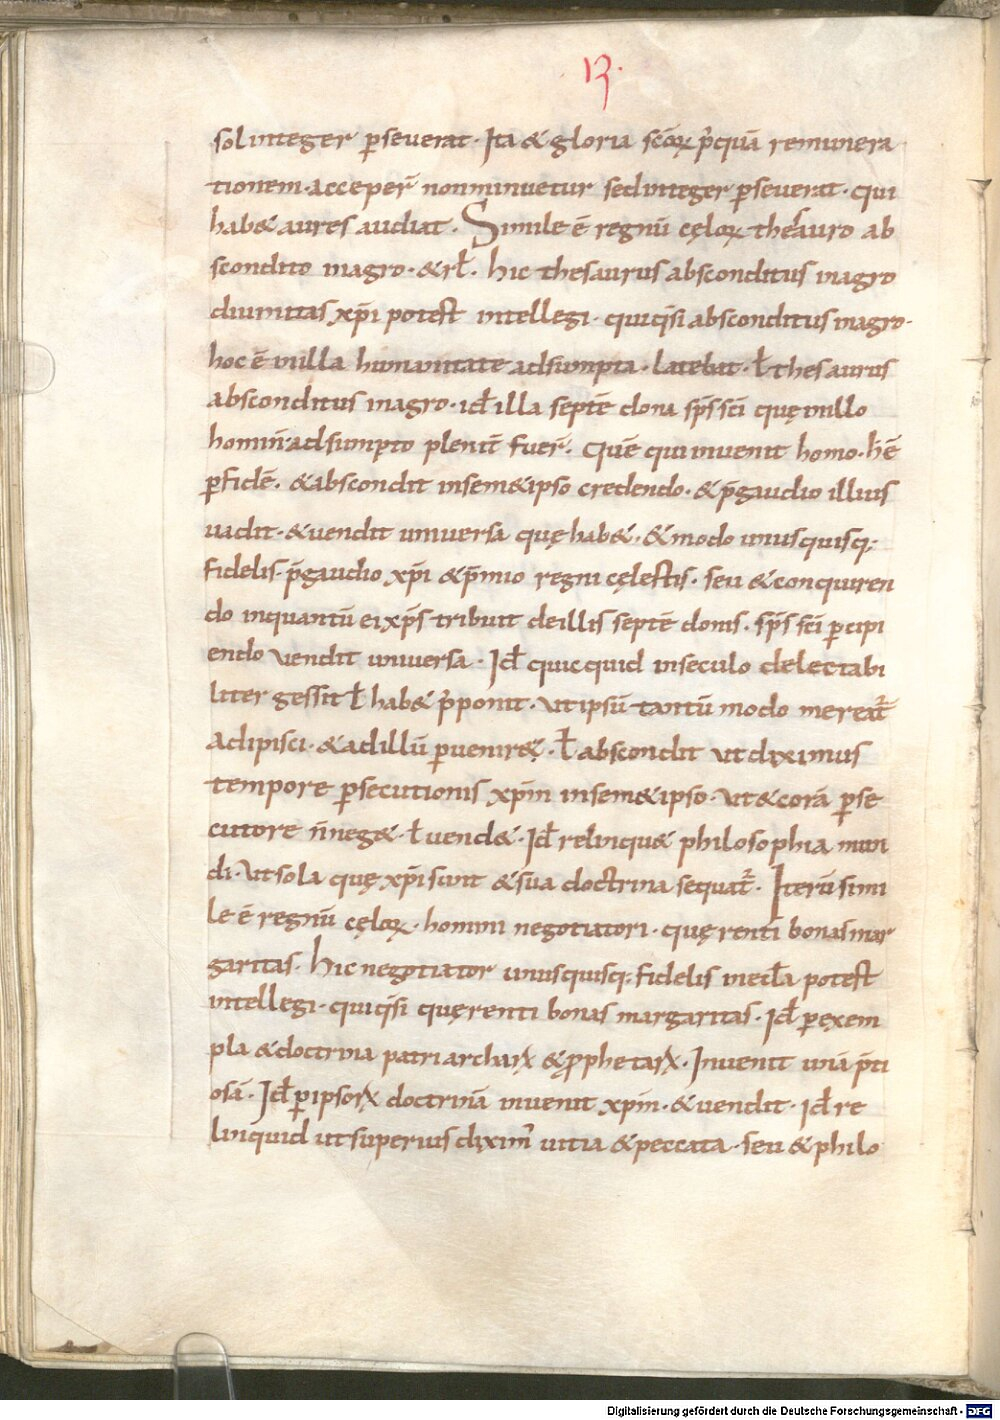 13.
sol integer p̲severat· Ita & gloria sc̄oꝝ p̄quā remunera
tionem· acceper̄ nonminuetur sed integer p̲severat· qui
hab& aures audiat· Simile ē regnū cęloꝝ thesauro ab
scondito inagro· & rł· hic thesaurus absconditus inagro
diuinitas xp̄i potest intellegi· quiq̇si absconditus inagro·
hoc ē inilla humanitate adsumpta· latebat· ł thesaurus
absconditus inagro· id̄ illa septē dona sp̄s sc̄i quę inillo
homin̄· adsumpto plenit̄ fuer̄· Quē qui inuenit homo· h̄ ē
p̲ fidē· & abscondit insem&ipso credendo· & p̄gaudio illius
uadit· & uendit uniuersa quę hab&· & modo unusquisq;
fidelis· p̄gaudio xp̄i & p̄mio regni cęlestis· seu & conquiren
do inquantū ei xp̄s tribuit deillis septē donis· sp̄s sc̄i p̲cipi
endo uendit uniuersa· Id̄ quicquid inseculo delectabi
liter gessit ł hab& p̄ponit· ut ipsū tantū modo mereat̄
adipisci· & adillū p̲uenire· ł abscondit ut diximus
tempore p̲secutionis xp̄m insem&ipso· ut & corā p̲se
cutore n̄neg&· ł uend&· Id̄ relinqu& philosophia mun
di· ut sola quę xp̄i sunt & sua doctrina sequat̄· Iterū simi
le ē regnū cęloꝝ· homini negotiatori· quęrenti bonas mar
garitas· hic negotiator unusquisq; fidelis mecła potest
intellegi· quiq̇si quęrenti bonas margaritas· Id̄ p̲ exem
pla & doctrina patriarcharꝝ & p̲phetarꝝ· Inuenit unā p̄ti
osā· Id̄ p̲ ipsorꝝ doctrinā inuenit xp̄m· & uendit· id̄ re
linquid ut superius diximꝰ uitia & peccata· seu & philo
Digitalisierung gefördert durch die Deutsche Forschungsgemeinschaft - DFG